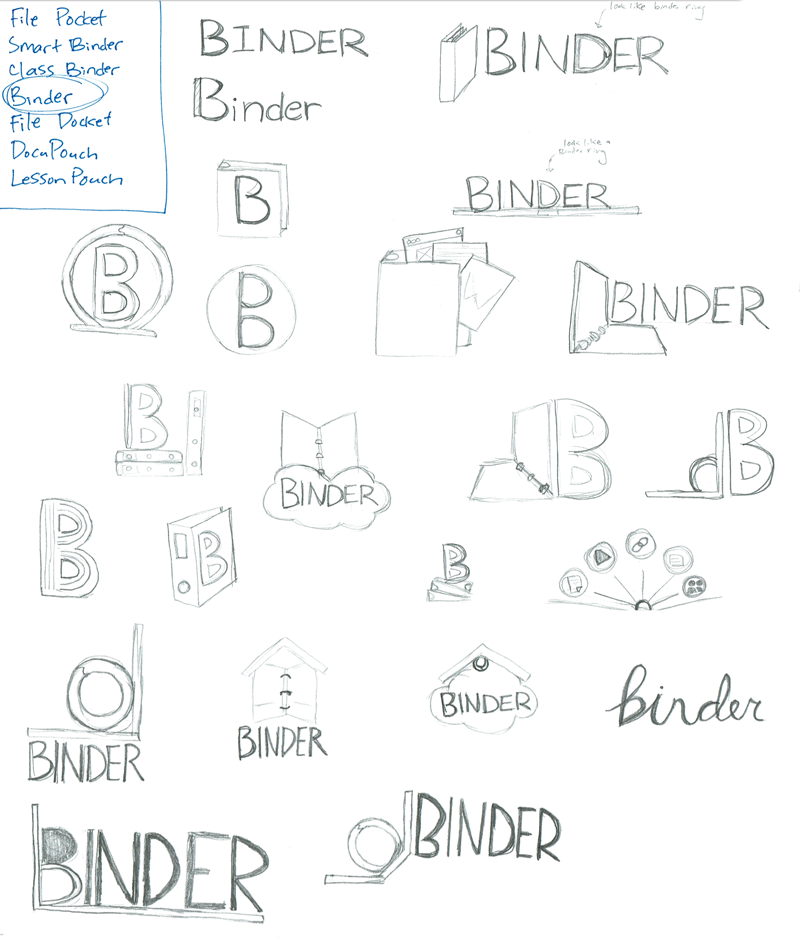 File Pocket
Smart Binder
Class Binder
Binder
File Docket
DocuPouch
Lesson Pouch
look like binder ring
BINDER
BINDER
Binder
look like a
Binder ring
B
BINDER
B
B
BINDER
B
B
B
BINDER
B
B
B
B
BINDER
BINDER
BINDER
binder
BINDER
BINDER